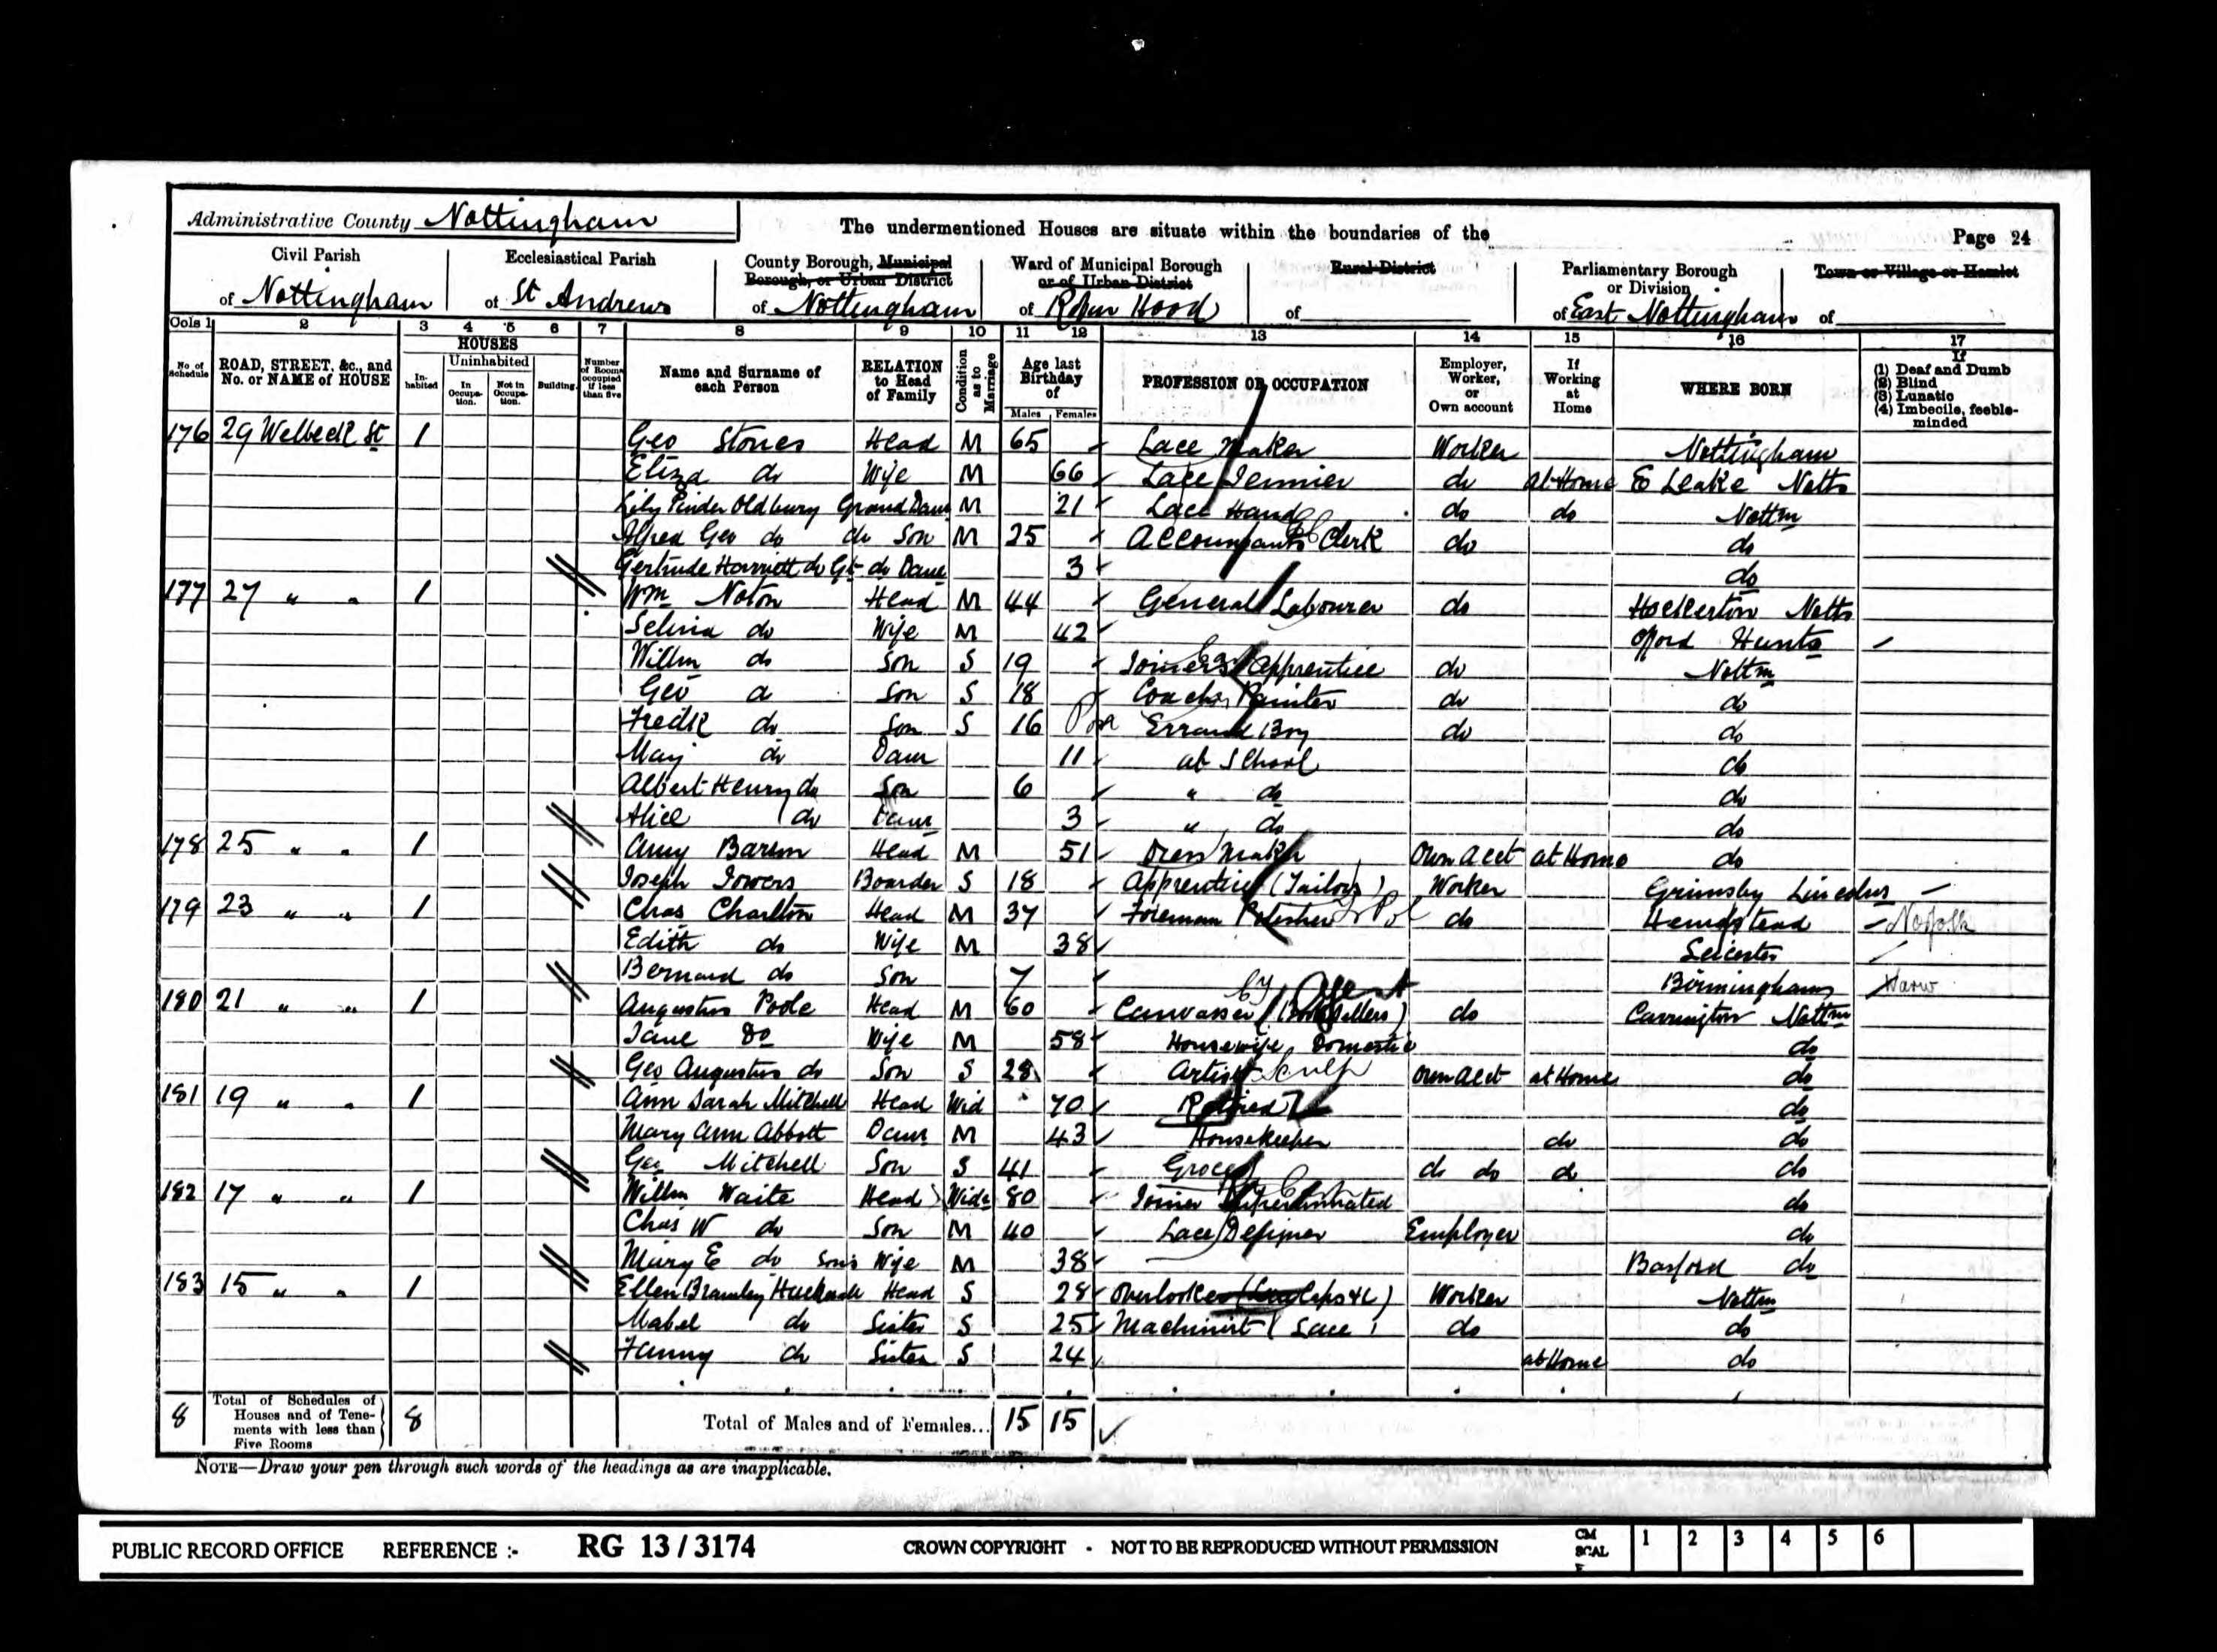 Administrative County Nottingham
The undermentioned Houses are situate within the boundaries of the
Page 24
Civil Parish
of Nottingham
Ecclesiastical Parish
of St Andrews
County Borough, Municipal
Borough, or Urban District
of Nottingham
Ward of Municipal Borough
or of Urban District
of Robin Hood
Rural District
of
Parliamentary Borough
or Division
of East Nottingham
Town or Village or Hamlet
of
Cols 1 2 3 4 5 6 7 8 9 10 11 12 13 14 15 16 17
No of Schedule
ROAD, STREET, &c., and No. or NAME of HOUSE
HOUSES
In-habited
Uninhabited
In Occupa-tion.
Not in Occupa-tion.
Building
Number of Rooms occupied if less than five
Name and Surname of each Person
RELATION to Head of Family
Condition as to Marriage
Age last Birthday of
Males Females
PROFESSION OR OCCUPATION
Employer, Worker, or Own account
If Working at Home
WHERE BORN
If
(1) Deaf and Dumb
(2) Blind
(3) Lunatic
(4) Imbecile, feeble-minded
176 29 Welbeck St 1 Geo Stones Head M 65 Lace Maker Worker Nottingham
Eliza do Wife M 66 Lace Jennier do at Home E Leake Notts
Lily Pinder Oldbury Grand Daur M 21 Lace Hand do do Nottm
Alfred Geo do do Son M 25 Accountants Clerk do do
Gertrude Harriett do Gt do Daur 3 do
177 27 " " 1 Wm Noton Head M 44 General Labourer do Hockerton Notts
Selina do Wife M 42 Offord Hunts
Willm do Son S 19 Joiners Apprentice do Nottm
Geo do Son S 18 Coach Painter do do
Fredk do Son S 16 Errand Boy do do
May do Daur 11 at School do
Albert Henry do Son 6 " do do
Alice do Daur 3 " do do
178 25 " " 1 Amy Head M 51 Dress Maker Own acct at Home do
Joseph Towers Boarder S 18 Apprentice (Tailors) Worker Grimsby Lincolns
179 23 " " 1 Chas Charlton Head M 37 Foreman Polisher Fr Pol do Hempstead Norfolk
Edith do Wife M 38 Leicester
Bernard do Son 7 Birmingham Warw
180 21 " " 1 Augustus Poole Head M 60 Canvasser (Booksellers) Agent do Carrington Nottm
Jane Do Wife M 58 Housewife Domestic do
Geo Augustus do Son S 28 Artist Sculp Own acct at Home do
181 19 " " 1 Ann Sarah Mitchell Head Wid 70 Retired do
Mary Ann Abbott Daur M 43 Housekeeper do do
Geo Mitchell Son S 41 Grocer do do do do
182 17 " " 1 Willm Waite Head Widr 80 Joiner Superannuated do
Chas W do Son M 40 Lace Designer Employer do
Mary E do Sons Wife M 38 Basford do
183 15 " " 1 Ellen Bramley Head S 28 Overlooker Worker Nottm
Mabel do Sister S 25 Machinist (Lace) do do
Fanny do Sister S 24 at Home do
8 Total of Schedules of Houses and of Tene-ments with less than Five Rooms 8 Total of Males and of Females... 15 15
NOTE—Draw your pen through such words of the headings as are inapplicable.
PUBLIC RECORD OFFICE REFERENCE :- RG 13 / 3174 CROWN COPYRIGHT - NOT TO BE REPRODUCED WITHOUT PERMISSION CM SCALE 1 2 3 4 5 6